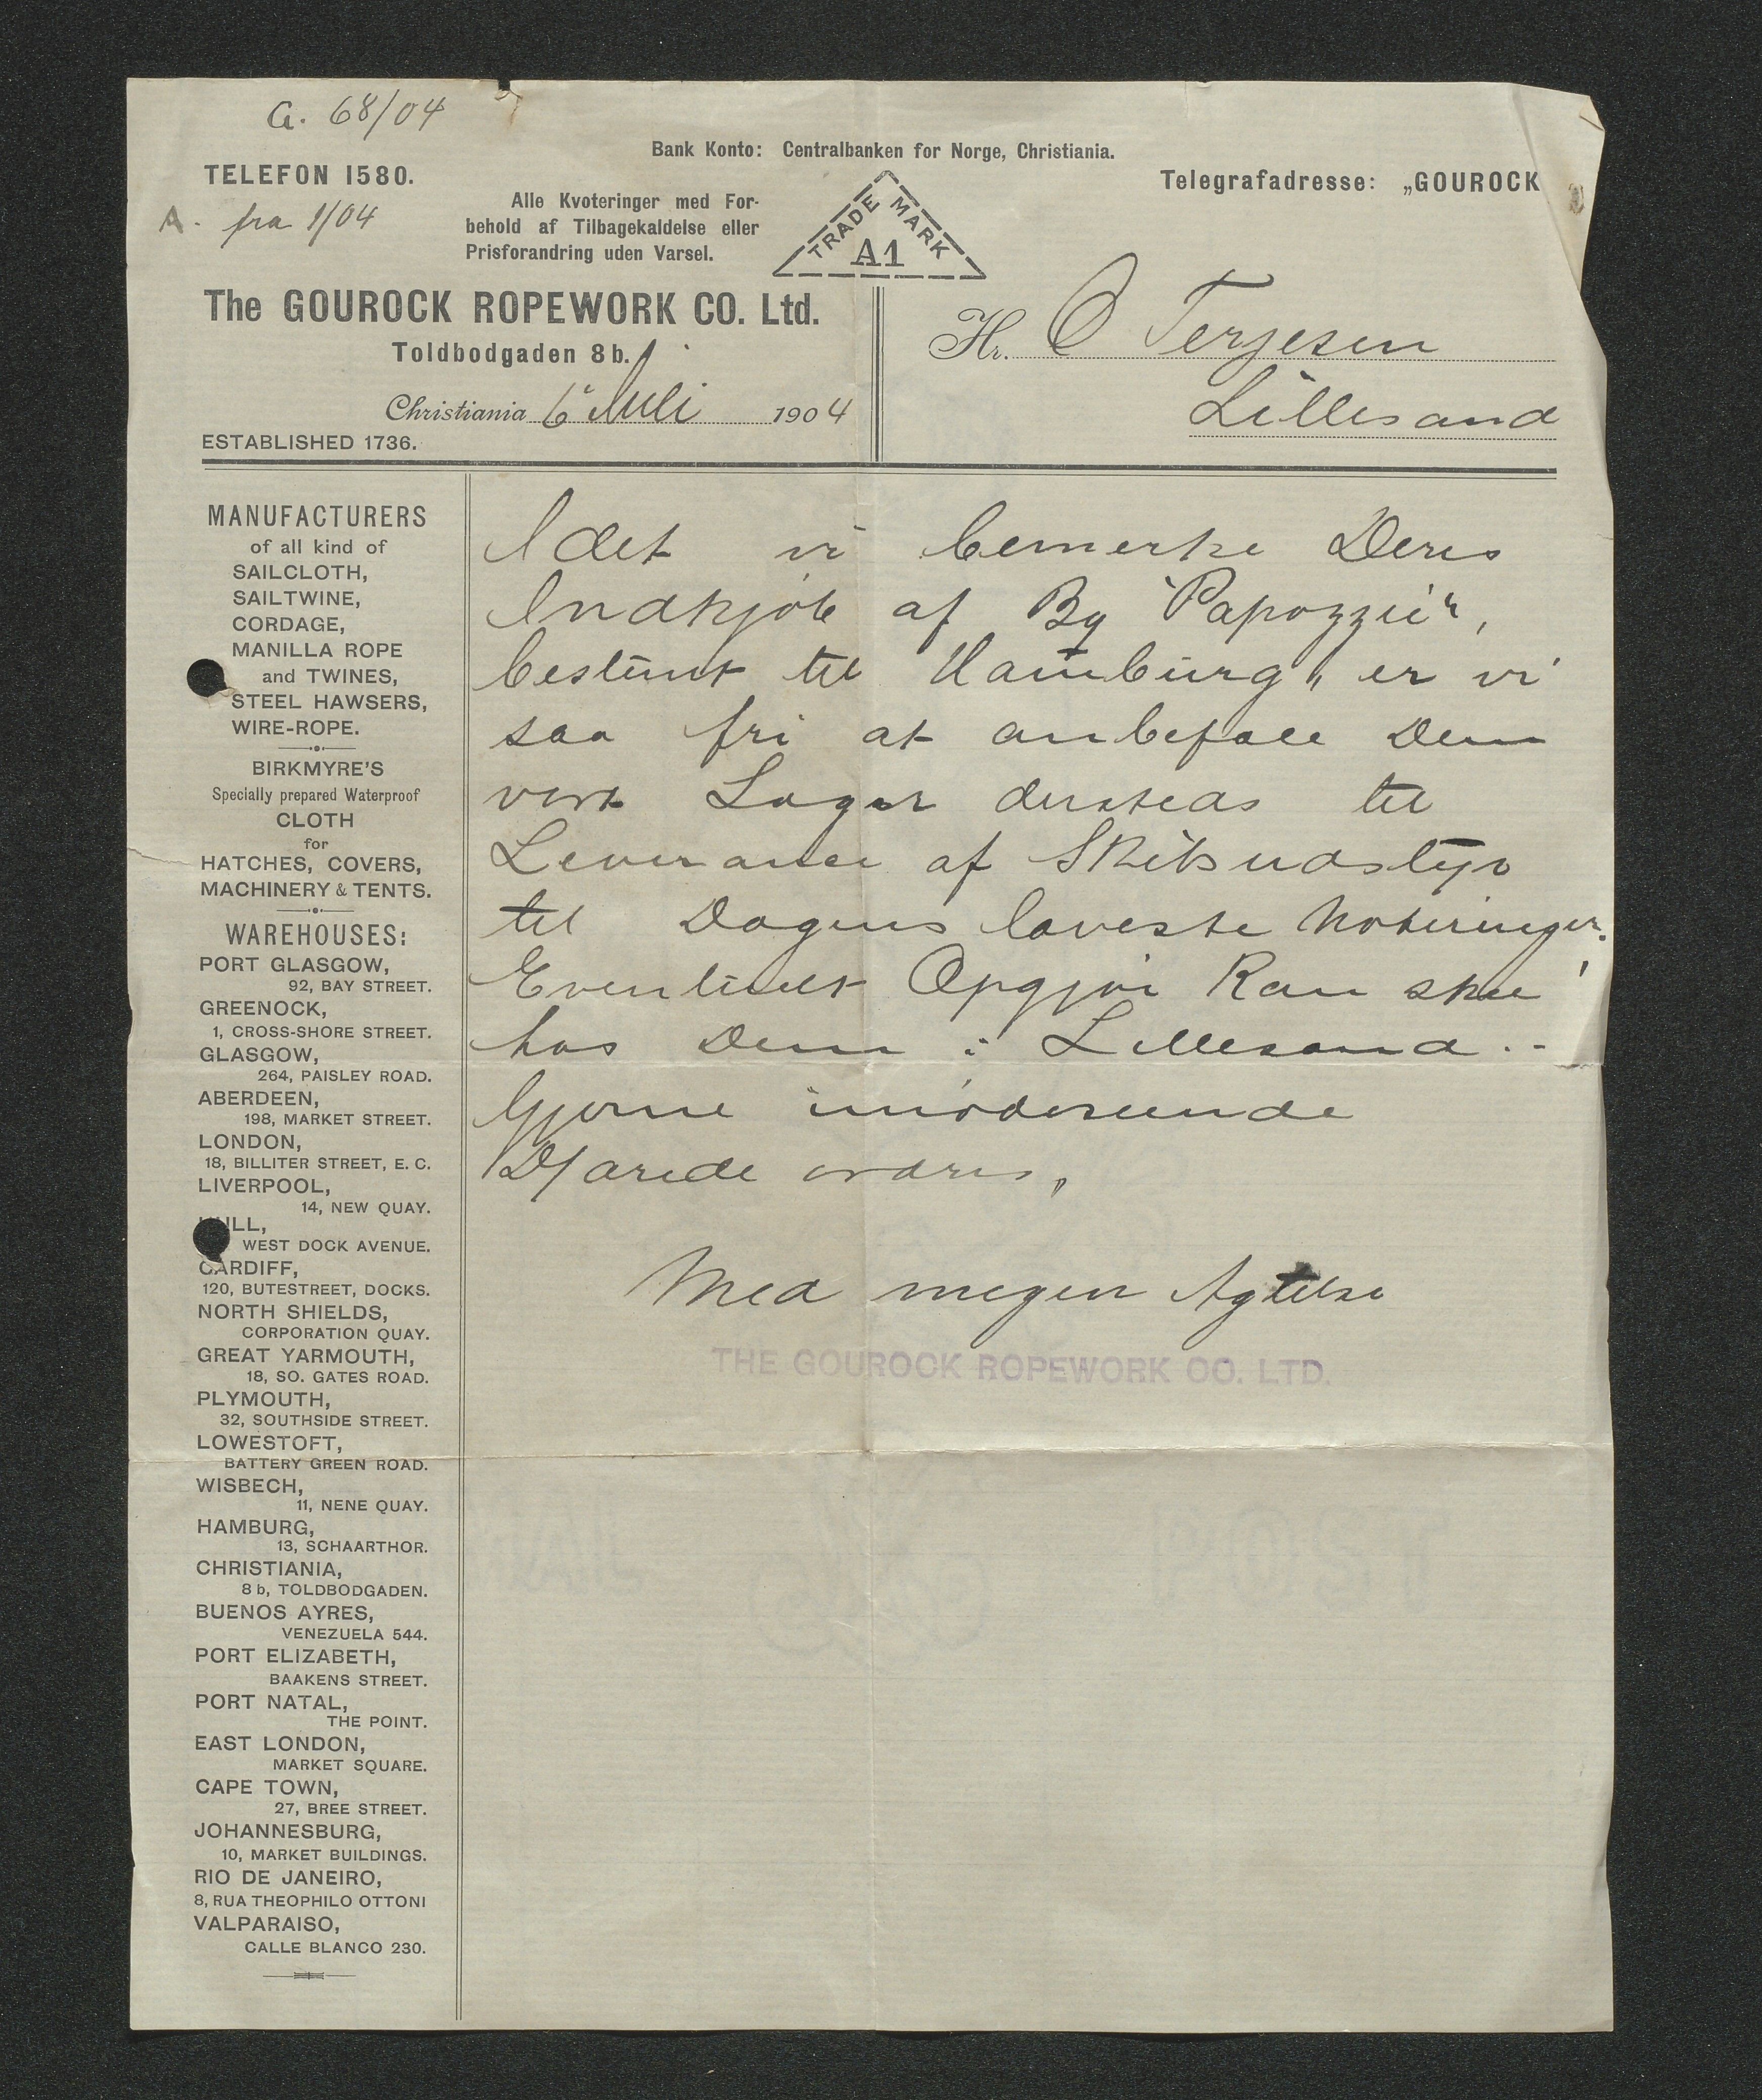 G. 68/04
Bank Konto: Centralbanken for Norge, Christiania.
TELEFON 1580.
Telegrafadresse: „GOUROCK
A. fra 1/04
Alle Kvoteringer med For-
behold af Tilbagekaldelse eller
Prisforandring uden Varsel.
TRADE MARK
A1
The GOUROCK ROPEWORK CO. Ltd.
Toldbodgaden 8b.
Hr. O Terjesen
Lillesand
Christiania 6 Juli 1904
ESTABLISHED 1736.
MANUFACTURERS
of all kind of
SAILCLOTH,
SAILTWINE,
CORDAGE,
MANILLA ROPE
and TWINES,
STEEL HAWSERS,
WIRE-ROPE.
BIRKMYRE'S
Specially prepared Waterproof
CLOTH
for
HATCHES, COVERS,
MACHINERY & TENTS.
WAREHOUSES:
PORT GLASGOW,
92, BAY STREET.
GREENOCK,
1, CROSS-SHORE STREET.
GLASGOW,
264, PAISLEY ROAD.
ABERDEEN,
198, MARKET STREET.
LONDON,
18, BILLITER STREET, E. C.
LIVERPOOL,
14, NEW QUAY.
HULL,
WEST DOCK AVENUE.
CARDIFF,
120, BUTESTREET, DOCKS.
NORTH SHIELDS,
CORPORATION QUAY.
GREAT YARMOUTH,
18, SO. GATES ROAD.
PLYMOUTH,
32, SOUTHSIDE STREET.
LOWESTOFT,
BATTERY GREEN ROAD.
WISBECH,
11, NENE QUAY.
HAMBURG,
13, SCHAARTHOR.
CHRISTIANIA,
8b, TOLDBODGADEN.
BUENOS AYRES,
VENEZUELA 544.
PORT ELIZABETH,
BAAKENS STREET.
PORT NATAL,
THE POINT.
EAST LONDON,
MARKET SQUARE.
CAPE TOWN,
27, BREE STREET.
JOHANNESBURG,
10, MARKET BUILDINGS.
RIO DE JANEIRO,
8, RUA THEOPHILO OTTONI
VALPARAISO,
CALLE BLANCO 230.
Idet vi bemerke Deres
Indkjöb af Bg "Papozzei",
bestemt til Hamburg, er vi
saa fri at anbefale Dem
vort Lager dersteds til
Leverance af Skibsudstyr
til Dagens laveste Noteringer.
Eventuelt Opgjör kan skee
hos Dem i Lillesand.-
Gjerne imödeseende
D/ ærede ordres,
Med megen Agtelse
THE GOUROCK ROPEWORK CO. LTD.